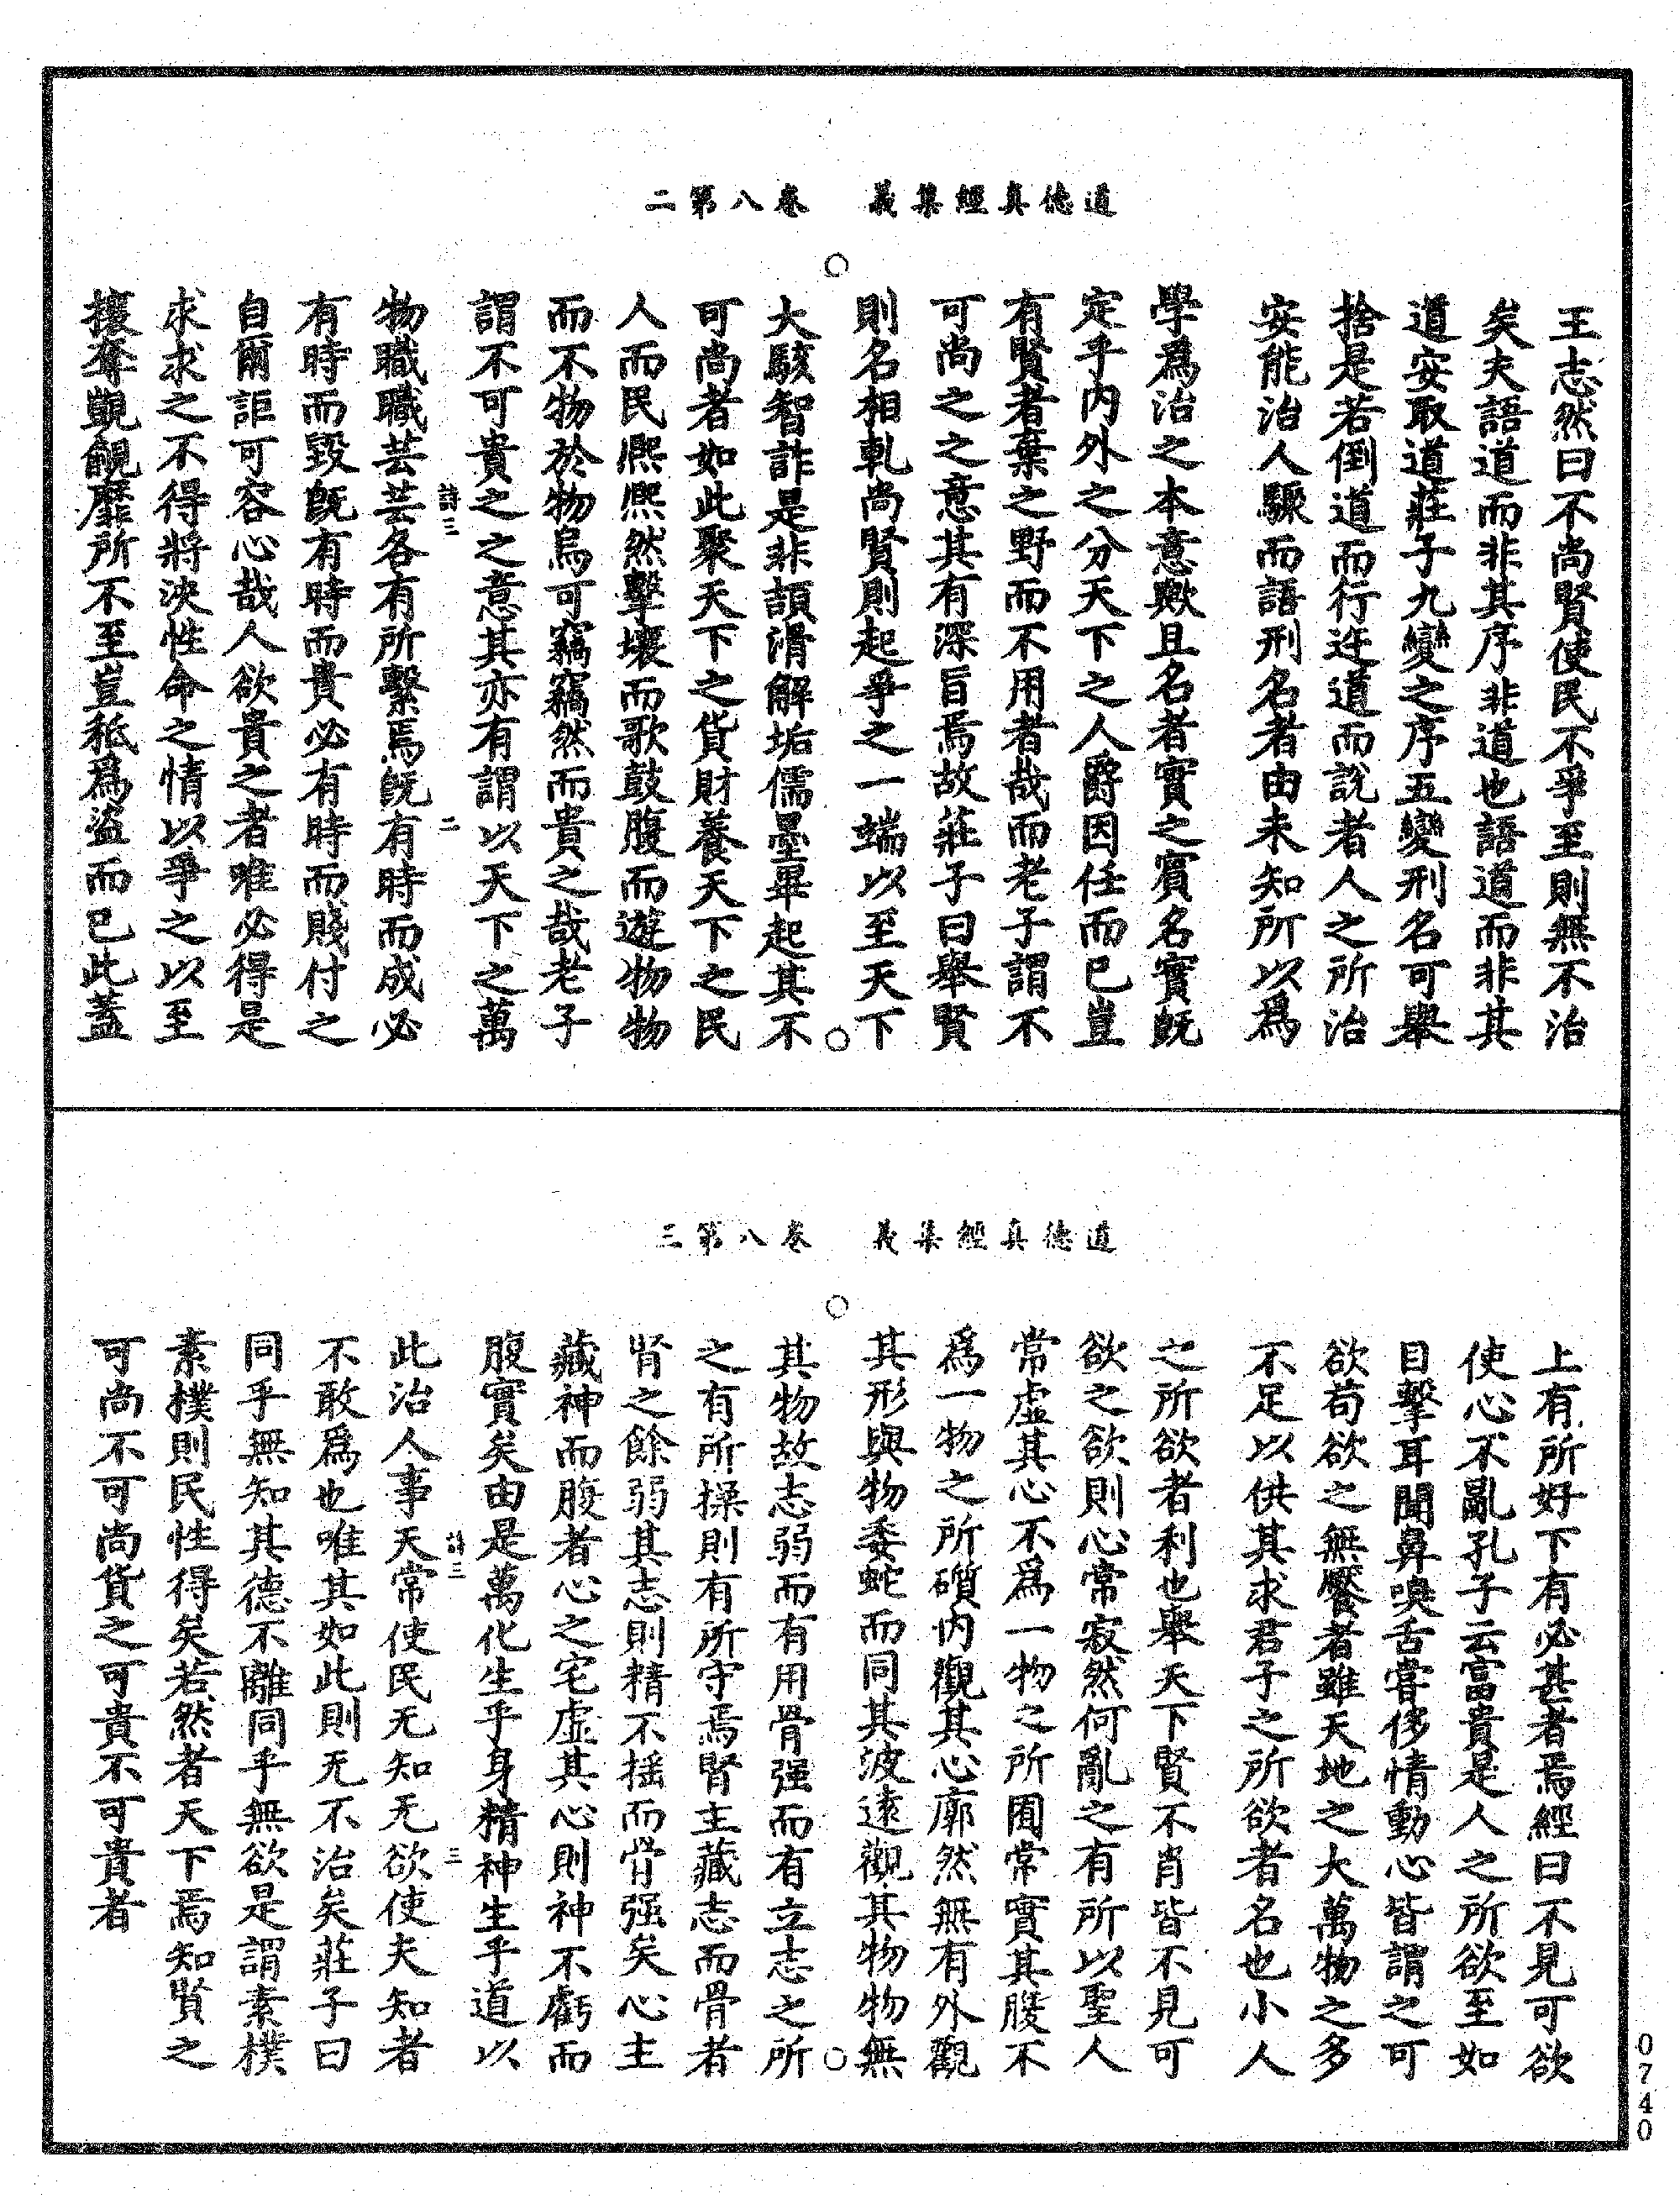 道德真經集義　卷八第二
王志然曰不尚賢使民不爭至則無不治
矣夫語道而非其序非道也語道而非其
道安取道莊子九變之序五變刑名可舉
捨是若倒道而行迕道而說者人之所治
安能治人驟而語刑名者由未知所以爲
學爲治之本意歟且名者實之賓名實旣
定乎內外之分天下之人爵因任而已豈
有賢者棄之野而不用者哉而老子謂不
可尚之之意其有深旨焉故莊子曰舉賢
則名相軋尚賢則起爭之一端以至天下
大駭智詐是非頡滑解垢儒墨畢起其不
可尚者如此聚天下之貨財養天下之民
人而民熙熙然擊壤而歌鼓腹而遊物物
而不物於物烏可竊竊然而貴之哉老子
謂不可貴之之意其亦有謂以天下之萬
詩三　二
物職職芸芸各有所繫焉旣有時而成必
有時而毀旣有時而貴必有時而賤付之
自爾詎可容心哉人欲貴之者唯必得是
求求之不得將決性命之情以爭之以至
攘奪覬覦靡所不至豈秪爲盜而已此蓋
道德真經集義　卷八第三
上有所好下有必甚者焉經曰不見可欲
使心不亂孔子云富貴是人之所欲至如
目擊耳聞鼻嗅舌嘗侈情動心皆謂之可
欲苟欲之無饜者雖天地之大萬物之多
不足以供其求君子之所欲者名也小人
之所欲者利也舉天下賢不肖皆不見可
欲之欲則心常寂然何亂之有所以聖人
常虛其心不爲一物之所囿常實其腹不
爲一物之所礩內觀其心廓然無有外觀
其形與物委蛇而同其波遠觀其物物無
其物故志弱而有用骨强而有立志之所
之有所操則有所守焉腎主藏志而骨者
腎之餘弱其志則精不搖而骨强矣心主
藏神而腹者心之宅虛其心則神不虧而
腹實矣由是萬化生乎身精神生乎道以
詩三　三
此治人事天常使民无知无欲使夫知者
不敢爲也唯其如此則无不治矣莊子曰
同乎無知其德不離同乎無欲是謂素樸
素樸則民性得矣若然者天下焉知賢之
可尚不可尚貨之可貴不可貴者
0740